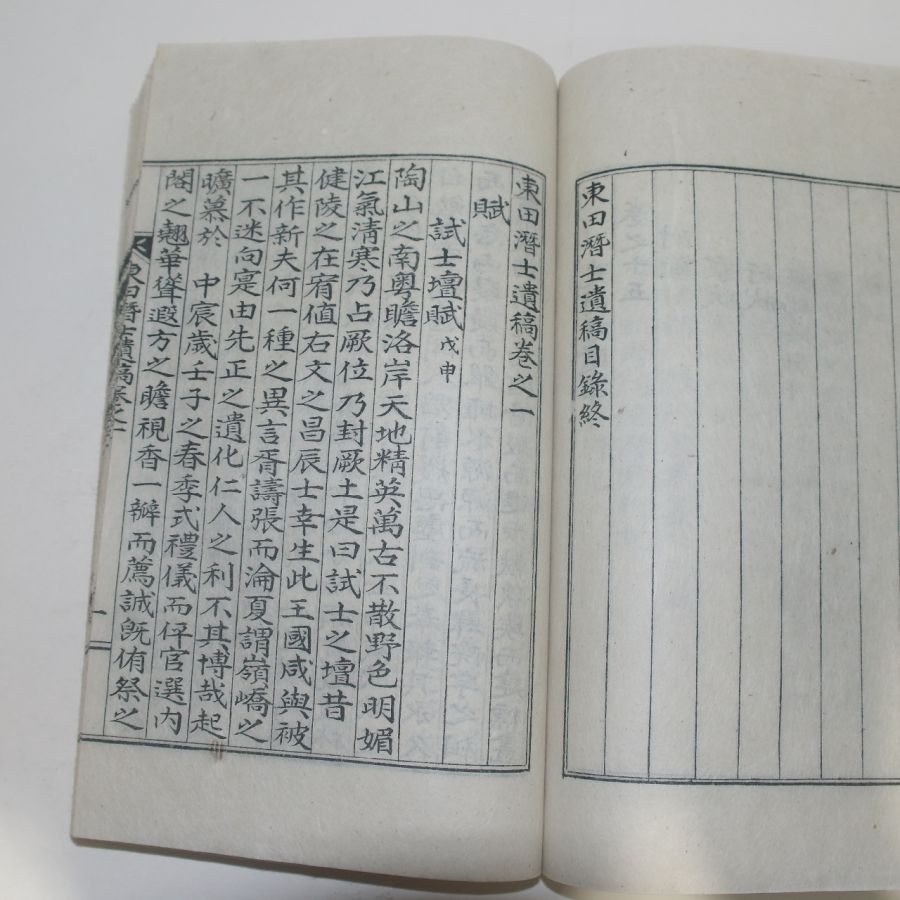 東田潛士遺稿目錄終
東田潛士遺稿卷之一
賦
試士壇賦 戊申
陶山之南粵瞻洛岸天地精英萬古不散野色明媚
江氣清寒乃占厥位乃封厥土是曰試士之壇昔
健陵之在宥値右文之昌辰士幸生此王國咸與被
其作新夫何一種之異言胥譸張而淪夏謂嶺嶠之
一不迷向寔由先正之遺化仁人之利不其博哉起
曠慕於 中宸歲壬子之春季式禮儀而伻官選內
閣之翹華聳遐方之瞻視香一瓣而薦誠旣侑祭之
東田潛士遺稿卷之一
一